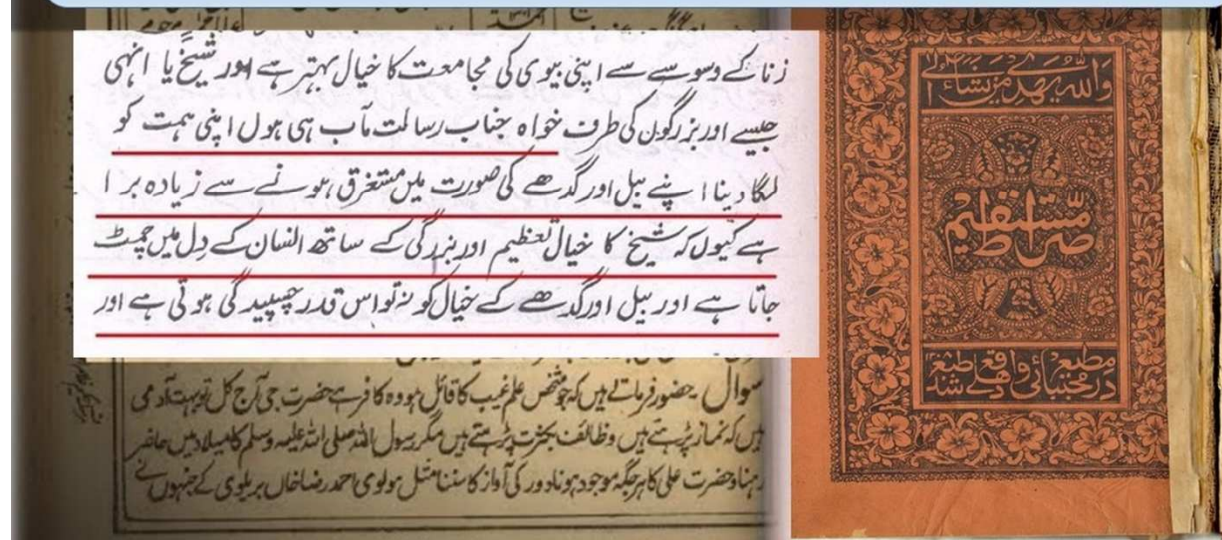 زنا کے وسوسے سے اپنی بیوی کی مجامعت کا خیال بہتر ہے اور شیخ یا انہی
جیسے اور بزرگوں کی طرف خواہ جناب رسالت مآب ہی ہوں اپنی ہمت کو
لگا دینا اپنے بیل اور گدھے کی صورت میں مستغرق ہونے سے زیادہ برا
ہے کیوں کہ شیخ کا خیال تعظیم اور بزرگی کے ساتھ انسان کے دل میں چمٹ
جاتا ہے اور بیل اور گدھے کے خیال کو نہ تو اس قدر چسپیدگی ہوتی ہے اور
سوال حضور فرماتے ہیں کہ جو شخص علم غیب کا قائل ہو وہ کافر ہے حضرت جی آج کل تو بہت آدمی
ہیں کہ نماز پڑھتے ہیں وظائف بکثرت پڑھتے ہیں مگر رسول اللہ صلی اللہ علیہ وسلم کا میلاد میں حاضر
رہنا و حضرت علی کا ہر جگہ موجود ہونا دور کی آواز کا سننا مثل مولوی احمد رضا خاں بریلوی کے جنہوں نے
واللہ یھدی من یشاء الی
صراط مستقیم
در مطبع مجتبائی واقع دہلی طبع شد